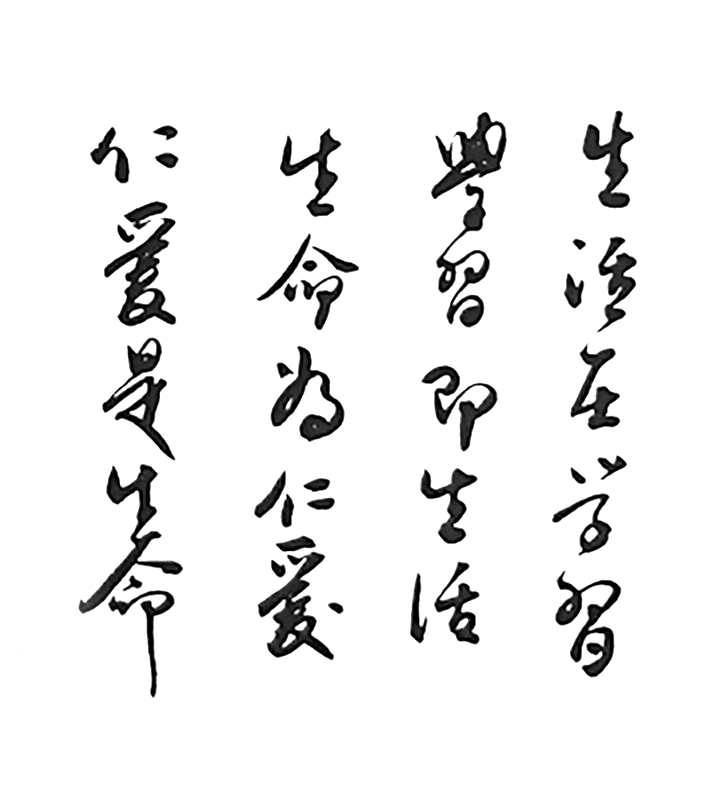 生活在学習
學習即生活
生命為仁愛
仁愛是生命